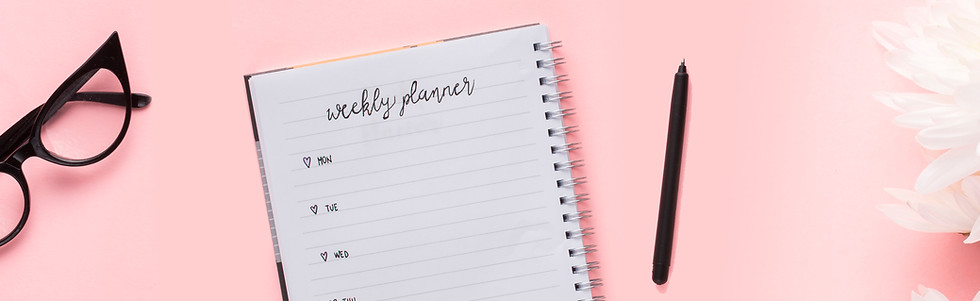 weekly planner
♡ MON
♡ TUE
♡ WED
♡ THU